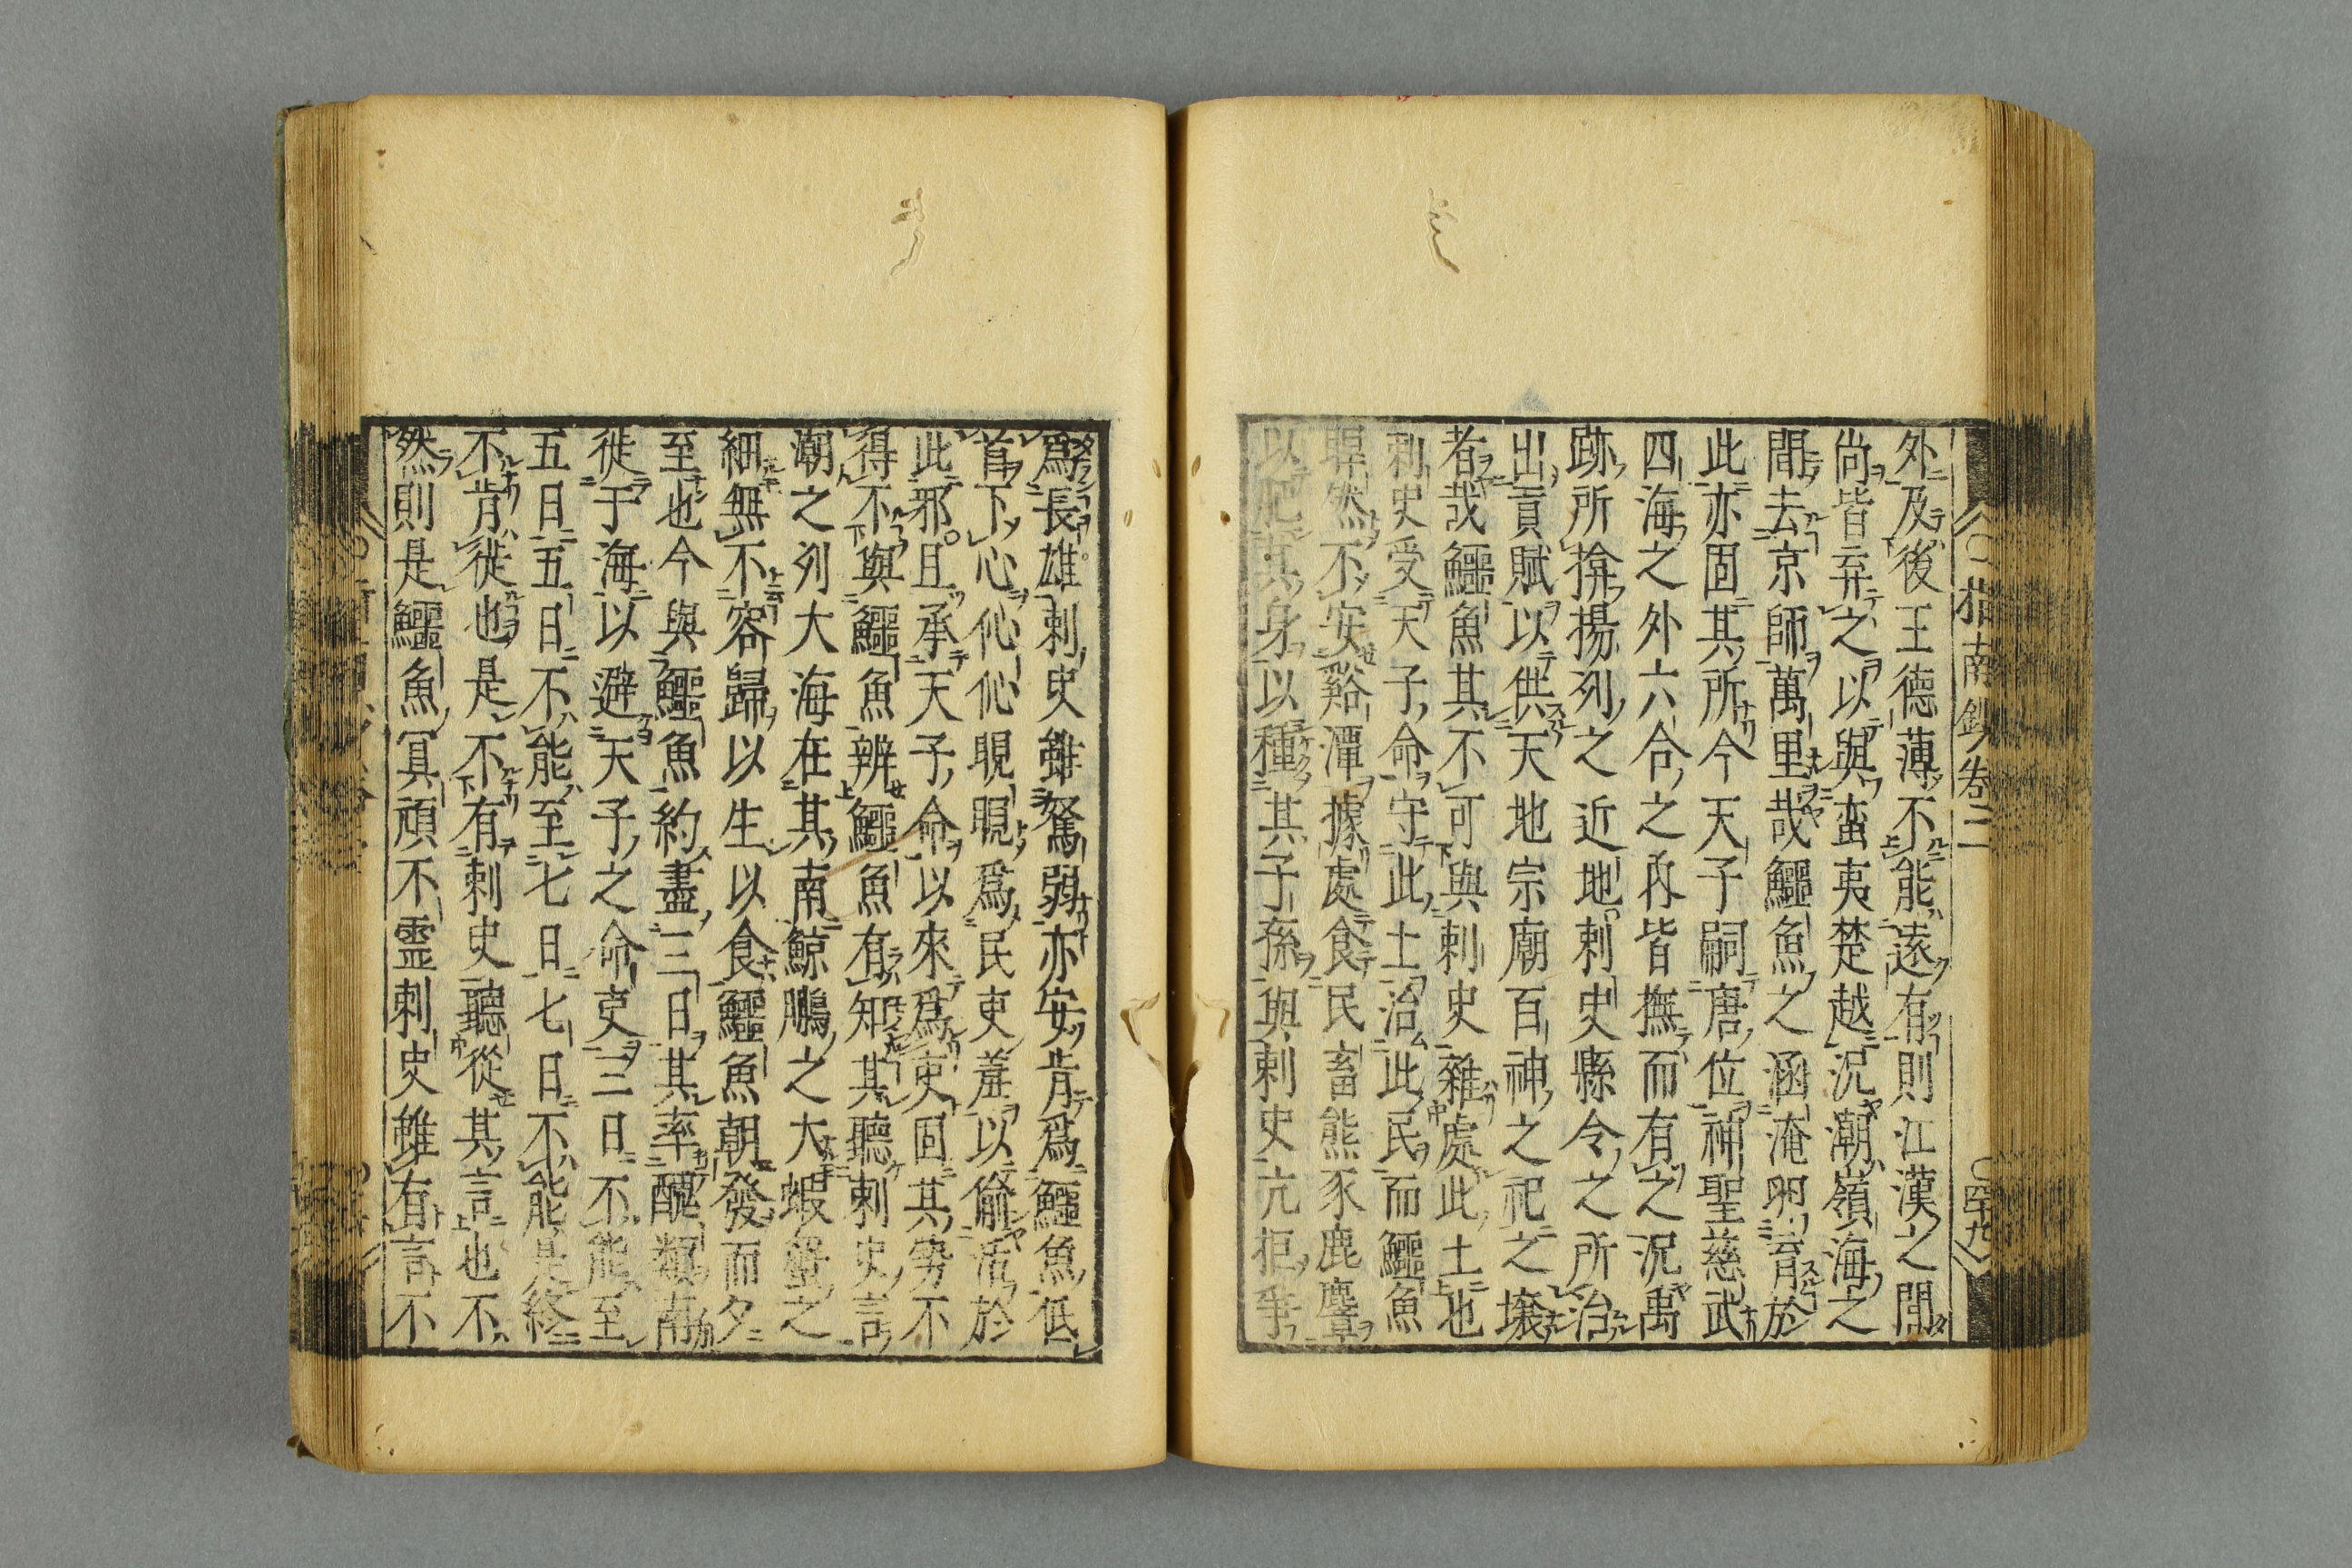 外及後王德薄不能遠有則江漢之間
尚皆弃之以與蛮夷楚越況潮嶺海之
間去京師萬里哉鱷魚之涵淹卵育於
此亦固其所今天子嗣唐位神聖慈武
四海之外六合之内皆撫而有之況禹
跡所揜揚列之近地刺史縣令之所治
出貢賦以供天地宗廟百神之祀之壤
者哉鱷魚其不可與刺史雜處此土也
刺史受天子命守此土治此民而鱷魚
睅然不安谿潭據處食民畜熊豕鹿麞
以肥其身以種其子孫與刺史亢拒爭
指南鈔卷二
四十九
為長雄刺史雖駑弱亦安肯為鱷魚低
首下心伈伈睍睍為民吏羞以偷活於
此邪且承天子命以來為吏固其勢不
得不與鱷魚辨鱷魚有知其聽刺史言
潮之列大海在其南鯨鵬之大蝦蟹之
細無不容歸以生以食鱷魚朝發而夕
至也今與鱷魚約盡三日其率醜類南
徙于海以避天子之命吏三日不能至
五日五日不能至七日七日不能是終
不肯徙也是不有刺史聽從其言也不
然則是鱷魚冥頑不霊刺史雖有言不